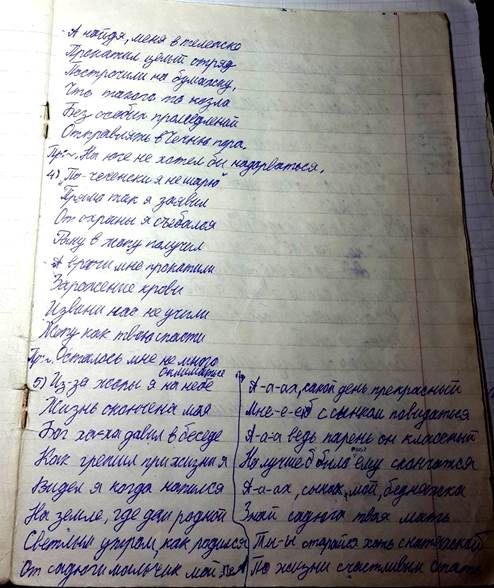 - А найдя, меня в тележке
Прокатил целый отряд
Настрочили на бумажку,
Что такого то козла
Без особых промедлений
Отправлять в Чечню пора
Пр:~. На юге не хотел бы надорваться,
4) "По-чеченски я не шарю"
Прямо так я заявил
От охраны я съебался
Рану в жопу получил
- А врачи мне прокатили
Заражение крови
Извени нас не учили
Жопу как твою спасти
Пр:~. Осталось мне не много
5) Из-за жопы я на небе
Жизнь окончена моя
Бог ха-ха давил в беседе
Как грешил при жизни я
Видел я когда напился
На земле, где дом родной
Светлым утром, как родился
От садюги мальчик мой
А-а-ах, какой день прекрасный
Мне-е-е б с сынком повидаться
А-а-а ведь парень он классный
Но лучше б было ему скончатся
А-а-ах, сынок, мой, бедняжка
Знай садюга твоя мать
Ты-ы старайся хоть
По жизни счастливым стать